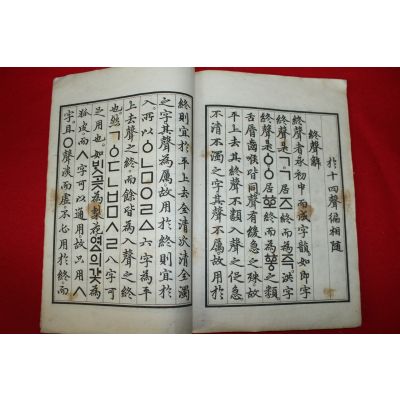 於十四聲徧相隨
終聲解
終聲者承初中而成字韻如即字
終聲是ㄱㄱ居즈終而為즉洪字
終聲是ㆁㆁ居ᅘᅩ終而為ᅘᅩᆼ之類
舌脣齒喉皆同聲有緩急之殊故
平上去其終聲不類入聲之促急
不清不濁之字其聲不厲故用於
終則宜於平上去全清次清全濁
之字其聲為厲故用於終則宜於
入所以ㆁㄴㅁㅇㄹㅿ六字為平
上去聲之終而餘皆為入聲之終
也然ㄱㆁㄷㄴㅂㅁㅅㄹ八字可
足用也如ᄇᆡᆺ곶為梨花여ᇫ의갗為
狐皮而ㅅ字可以通用故只用ㅅ
字且ㅇ聲淡而虛不必用於終而